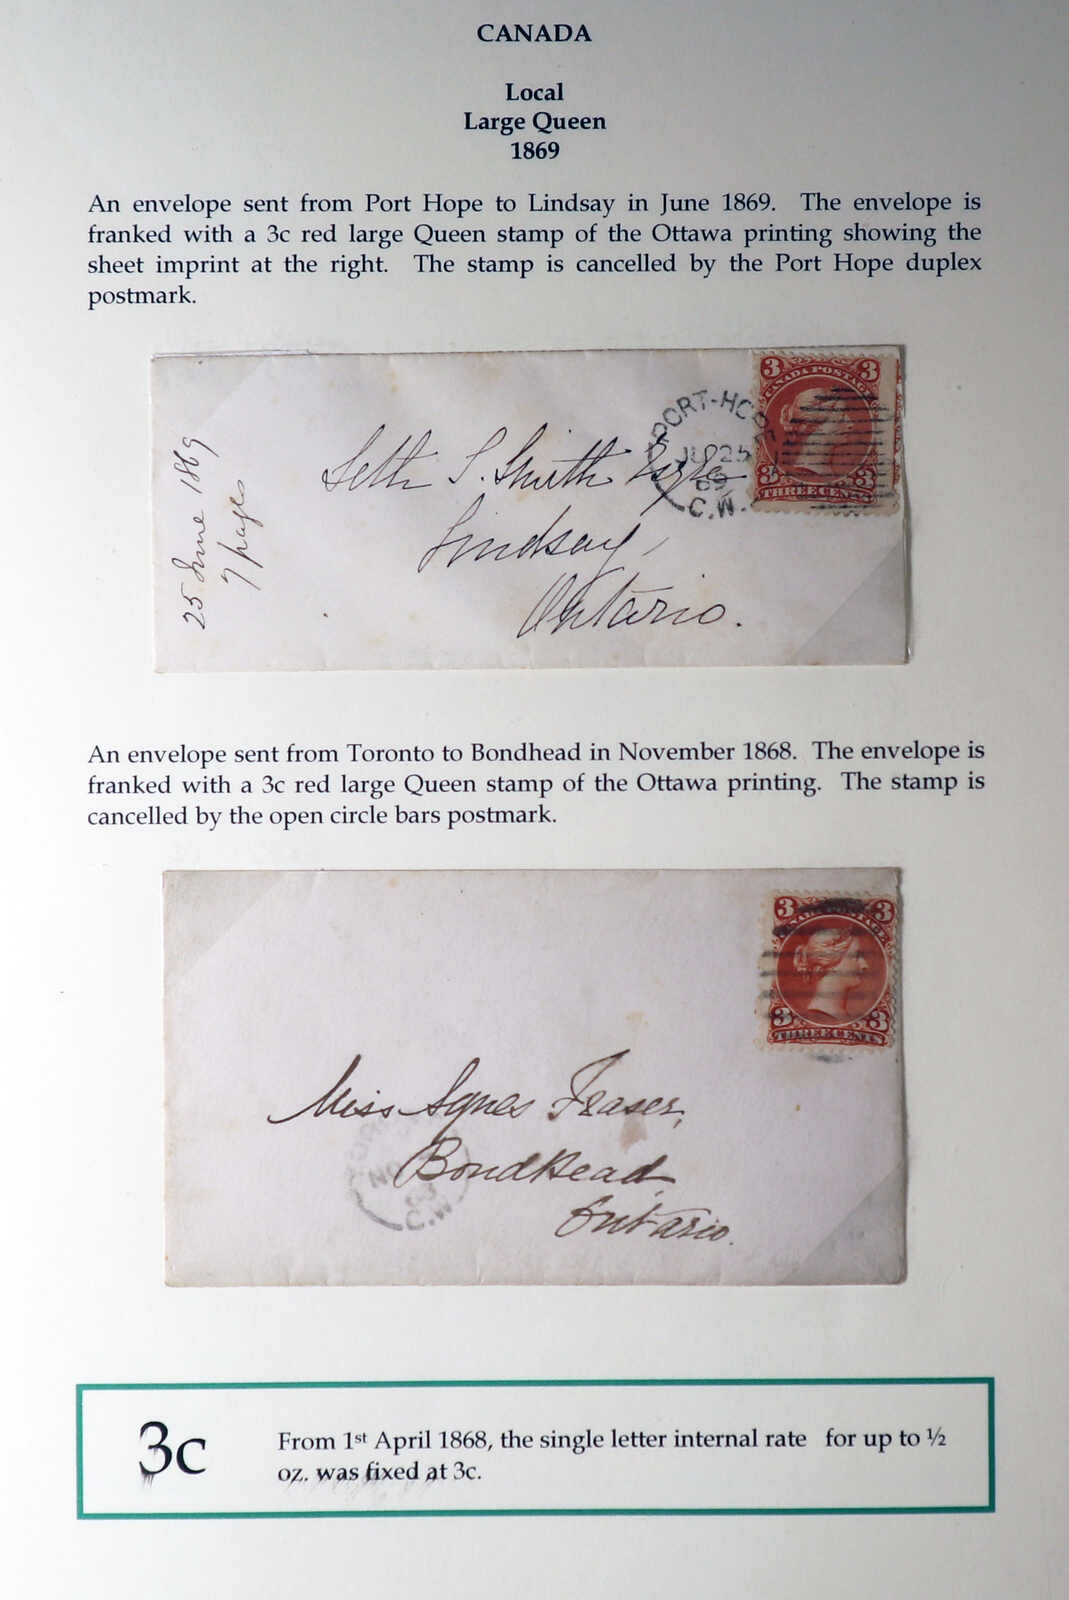 CANADA
Local
Large Queen
1869
An envelope sent from Port Hope to Lindsay in June 1869. The envelope is
franked with a 3c red large Queen stamp of the Ottawa printing showing the
sheet imprint at the right. The stamp is cancelled by the Port Hope duplex
postmark.
25 June 1869
7 pages
3 3
CANADA POSTAGE
3 3
THREE CENTS
PORT-HOPE
JU 25
69
C.W.
Seth S. Smith Esqre
Lindsay,
Ontario.
An envelope sent from Toronto to Bondhead in November 1868. The envelope is
franked with a 3c red large Queen stamp of the Ottawa printing. The stamp is
cancelled by the open circle bars postmark.
3 3
CANADA POSTAGE
3 3
THREE CENTS
Miss Agnes Fraser,
Bondhead
Ontario.
NO
C.W
3c
From 1st April 1868, the single letter internal rate for up to ½
oz. was fixed at 3c.